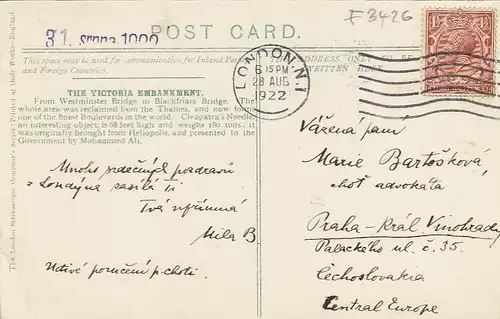 F 3426
31. srpna 1922
POST CARD.
This space may be used for communication for Inland
and Foreign Countries.
ADDRESS ONLY
WRITTEN HERE
LONDON. N.1
6 15 PM
28 AUG
1922
THE VICTORIA EMBANKMENT.
From Westminster Bridge to Blackfriars Bridge. The
whole area was reclaimed from the Thames, and now forms
one of the finest Boulevards in the world. Cleopatra's Needle,
an interesting object, is 68 feet high and weighs 180 tons. it
was originally brought from Heliopolis, and presented to the
Government by Mohammed Ali.
Mnoho srdečných pozdravů
z Londýna zasílá Ti
Tvá upřímná
Mila B.
Uctivé poručení p. choti.
Vážená paní
Marie Bartošková,
choť advokáta
Praha - Král. Vinohrady
Palackého ul. č. 35.
Čechoslovakia
Central Europe